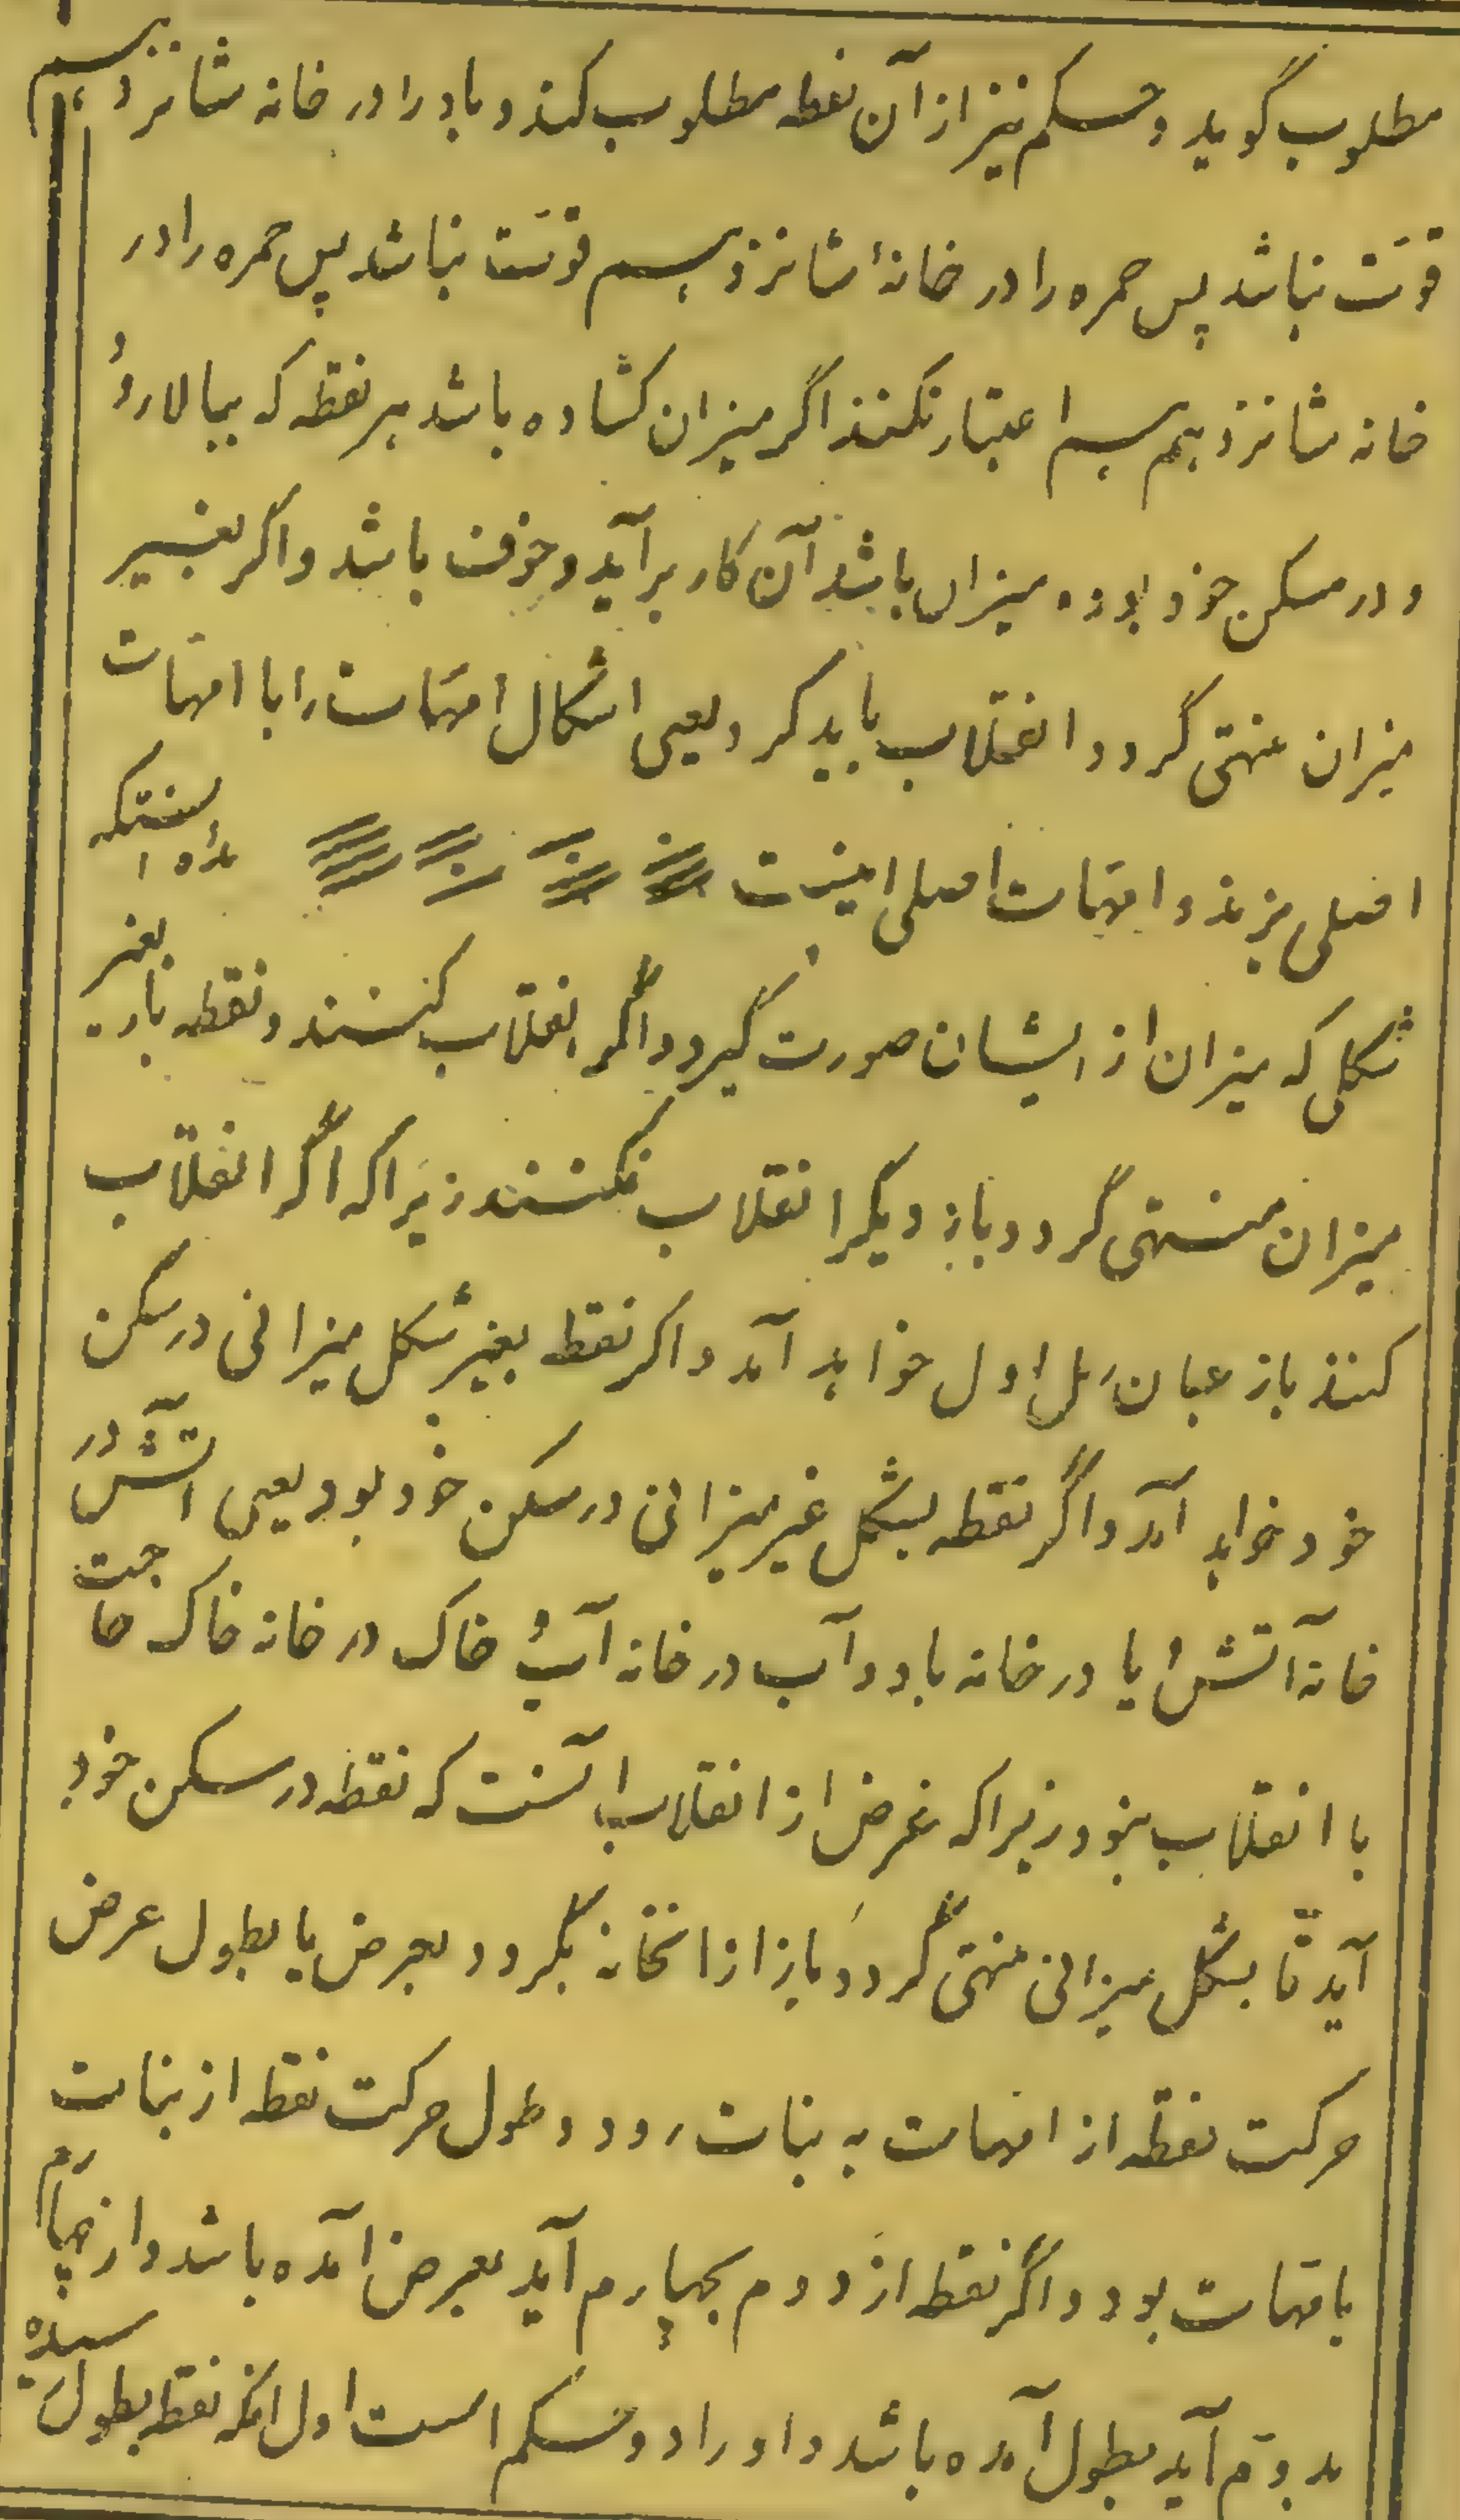 مطلوب گوید و حکم نیز از آن نقطه مطلوب کند و باد را در خانه شانزدہم
قوّت نباشد پس حمره را در خانهٔ شانزدہم قوّت نباشد پس حمره را در
خانه شانزدہم اعتبار نکنند اگر میزان کشاده باشد ہر نقطه که ببالا رود
و در مسکن خود بوده میزان باشد آن کار برآید و خوف باشد و اگر بغیر
میزان منتہی گردد انقلاب باید کرد یعنی اشکال امہات را با امہات
اصلی بزند و امہات اصلی اینست بدانکه
شکل که میزان از ایشان صورت گیرد و اگر انقلاب کنند و نقطه باز بغیر
میزان منتہی گردد باز دیگر انقلاب نکنند زیرا که اگر انقلاب
کنند باز ہمان رمل اول خواہد آمد و اگر نقطه بغیر شکل میزانی در مسکن
خود خواہد آمد و اگر نقطه بشکل غیر میزانی در مسکن خود بود یعنی آتش در
خانه آتش یا در خانه باد و آب در خانه آب خاک در خانه خاک حاجت
با انقلاب نبود زیرا که غرض از انقلاب آنست که نقطه در مسکن خود
آید تا بشکل میزانی منتہی گردد باز از انخانه بگردد بعرض یا بطول عرض
حرکت نقطه از امہات به بنات رود و طول حرکت نقطه از بنات
بامہات بود و اگر نقطه از دوم بچہارم آید بعرض آمده باشد و از چہارم
بدوم آید بطول آمده باشد و او را دو حکم است اول انکه نقطه بطول